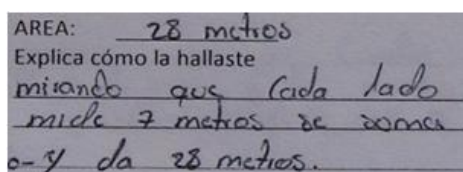 AREA: 28 metros
Explica cómo la hallaste
mirando que cada lado
mide 7 metros se soma
o-y da 28 metros.